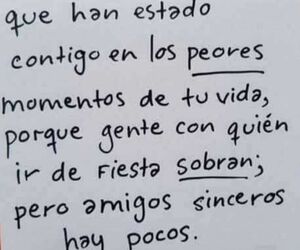 que han estado
contigo en los peores
momentos de tu vida,
porque gente con quién
ir de fiesta sobran;
pero amigos sinceros
hay pocos.